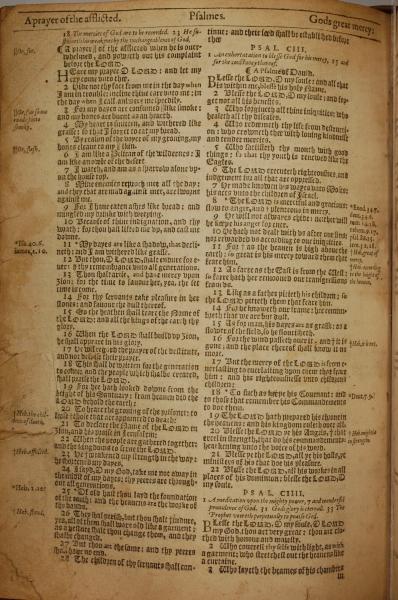 A prayer of the afflicted.
Psalmes.
Gods great mercy:
18 The mercies of God are to be recorded. 23 He su-
steineth his weaknes by the unchangeablenes of God.
A prayer || of the afflicted when he is over-
whelmed, and powreth out his complaint
before the LORD.
HEare my prayer O LORD: and let my
crie come unto thee.
2 Hide not thy face from me in the day when
I am in trouble, incline thine eare unto me: in
the day when I call answere me speedily.
3 For my dayes are consumed like smoke: and
my bones are burnt as an hearth.
4 My heart is smitten, and withered like
grasse: so that I forget to eat my bread.
5 By reason of the voyce of my groaning, my
bones cleave to my skin.
6 I am like a Pelican of the wildernes: I
am like an owle of the desert.
7 I watch, and am as a sparrow alone up-
on the house top.
8 Mine enemies reproch me all the day:
and they that are mad against me, are sworne
against me.
9 For I have eaten ashes like bread: and
mingled my drinke with weeping.
10 Because of thine indignation, and thy
wrath: for thou hast lifted me up, and cast me
downe.
11 *My dayes are like a shadow, that decli-
neth: and I am withered like grasse.
12 But thou, O LORD, shalt endure for e-
ver: and thy remembrance unto all generations.
13 Thou shalt arise, and have mercy upon
Sion: for the time to favour her, yea, the set
time is come.
14 For thy servants take pleasure in her
stones: and favour the dust thereof.
15 So the heathen shall feare the Name of
the LORD: and all the kings of the earth thy
glory.
16 When the LORD shall build up Sion,
he shall appeare in his glory.
17 He will regard the prayer of the destitute,
and not despise their prayer.
18 This shall be written for the generation
to come: and the people which shall be created,
shall praise the LORD.
19 For he hath looked downe from the
height of his Sanctuary: from heaven did the
LORD behold the earth:
20 To heare the groning of the prisoner: to
loose those that are appointed to death:
21 To declare the Name of the LORD in
Sion, and his praise in Jerusalem:
22 When the people are gathered together:
and the kingdoms to serve the LORD.
23 He weakened my strength in the way: he
shortened my dayes.
24 I sayd, O my God, take me not away in
the midst of my dayes: thy yeeres are through-
out all generations.
25 *Of old hast thou layd the foundation
of the earth: and the heavens are the worke of
thy hands.
26 They shall perish, but thou shalt endure,
yea, all of them shall waxe old like a garment:
as a vesture shalt thou change them, and they
shalbe changed.
27 But thou art the same: and thy yeeres
shall have no end.
28 The children of thy servants shall con-
tinue: and their seed shall be established before
thee.
PSAL. CIII.
1 An exhortation to blesse God for his mercy, 15 and
for the constancie thereof.
¶ A Psalme of David.
BLesse the LORD, O my soule: and all that
is within me, blesse his holy Name.
2 Blesse the LORD, O my soule: and for-
get not all his benefits.
3 Who forgiveth all thine iniquities: who
healeth all thy diseases.
4 Who redeemeth thy life from destructi-
on: who crowneth thee with loving kindnesse
and tender mercies.
5 Who satisfieth thy mouth with good
things: so that thy youth is renewed like the
Eagles.
6 The LORD executeth righteousnes, and
judgement for all that are oppressed.
7 He made knowen his wayes unto Moses:
his acts unto the children of Israel.
8 *The LORD is mercifull and gracious:
slow to anger, and plenteous in mercy.
9 He will not alwayes chide: neither will
he keepe his anger for ever.
10 He hath not dealt with us after our sins:
nor rewarded us according to our iniquities.
11 For as the heaven is high above the
earth: so great is his mercy toward them that
feare him.
12 As farre as the East is from the West:
so farre hath hee removed our transgressions
from us.
13 Like as a father pitieth his children: so
the LORD pitieth them that feare him.
14 For he knoweth our frame: hee remem-
breth that we are but dust.
15 As for man, his dayes are as grasse: as a
flower of the field, so he flourisheth.
16 For the wind passeth over it, and it is
gone: and the place thereof shall know it no
more.
17 But the mercy of the LORD is from e-
verlasting to everlasting upon them that feare
him: and his righteousnesse unto childrens
children:
18 *To such as keepe his Covenant: and
to those that remember his Commandements
to doe them.
19 The LORD hath prepared his throne in
the heavens: and his kingdom ruleth over all.
20 Blesse the LORD ye his Angels, that
excel in strength, that do his commandements:
hearkening unto the voice of his word.
21 Blesse ye the LORD all ye his hosts, ye
ministers of his that doe his pleasure.
22 Blesse the LORD all his works in all
places of his dominion: blesse the LORD, O
my soule.
PSAL. CIIII.
1 A meditation upon the mighty power, 7 and wonderful
providence of God. 31 Gods glory is eternal. 33 The
Prophet voweth perpetually to praise God.
BLesse the LORD, O my soule, O LORD
my God, thou art very great: thou art clo-
thed with honour and maiesty.
2 Who coverest thy selfe with light, as with
a garment: who stretchest out the heavens like
a curtaine.
3 Who layeth the beames of his chambers
in